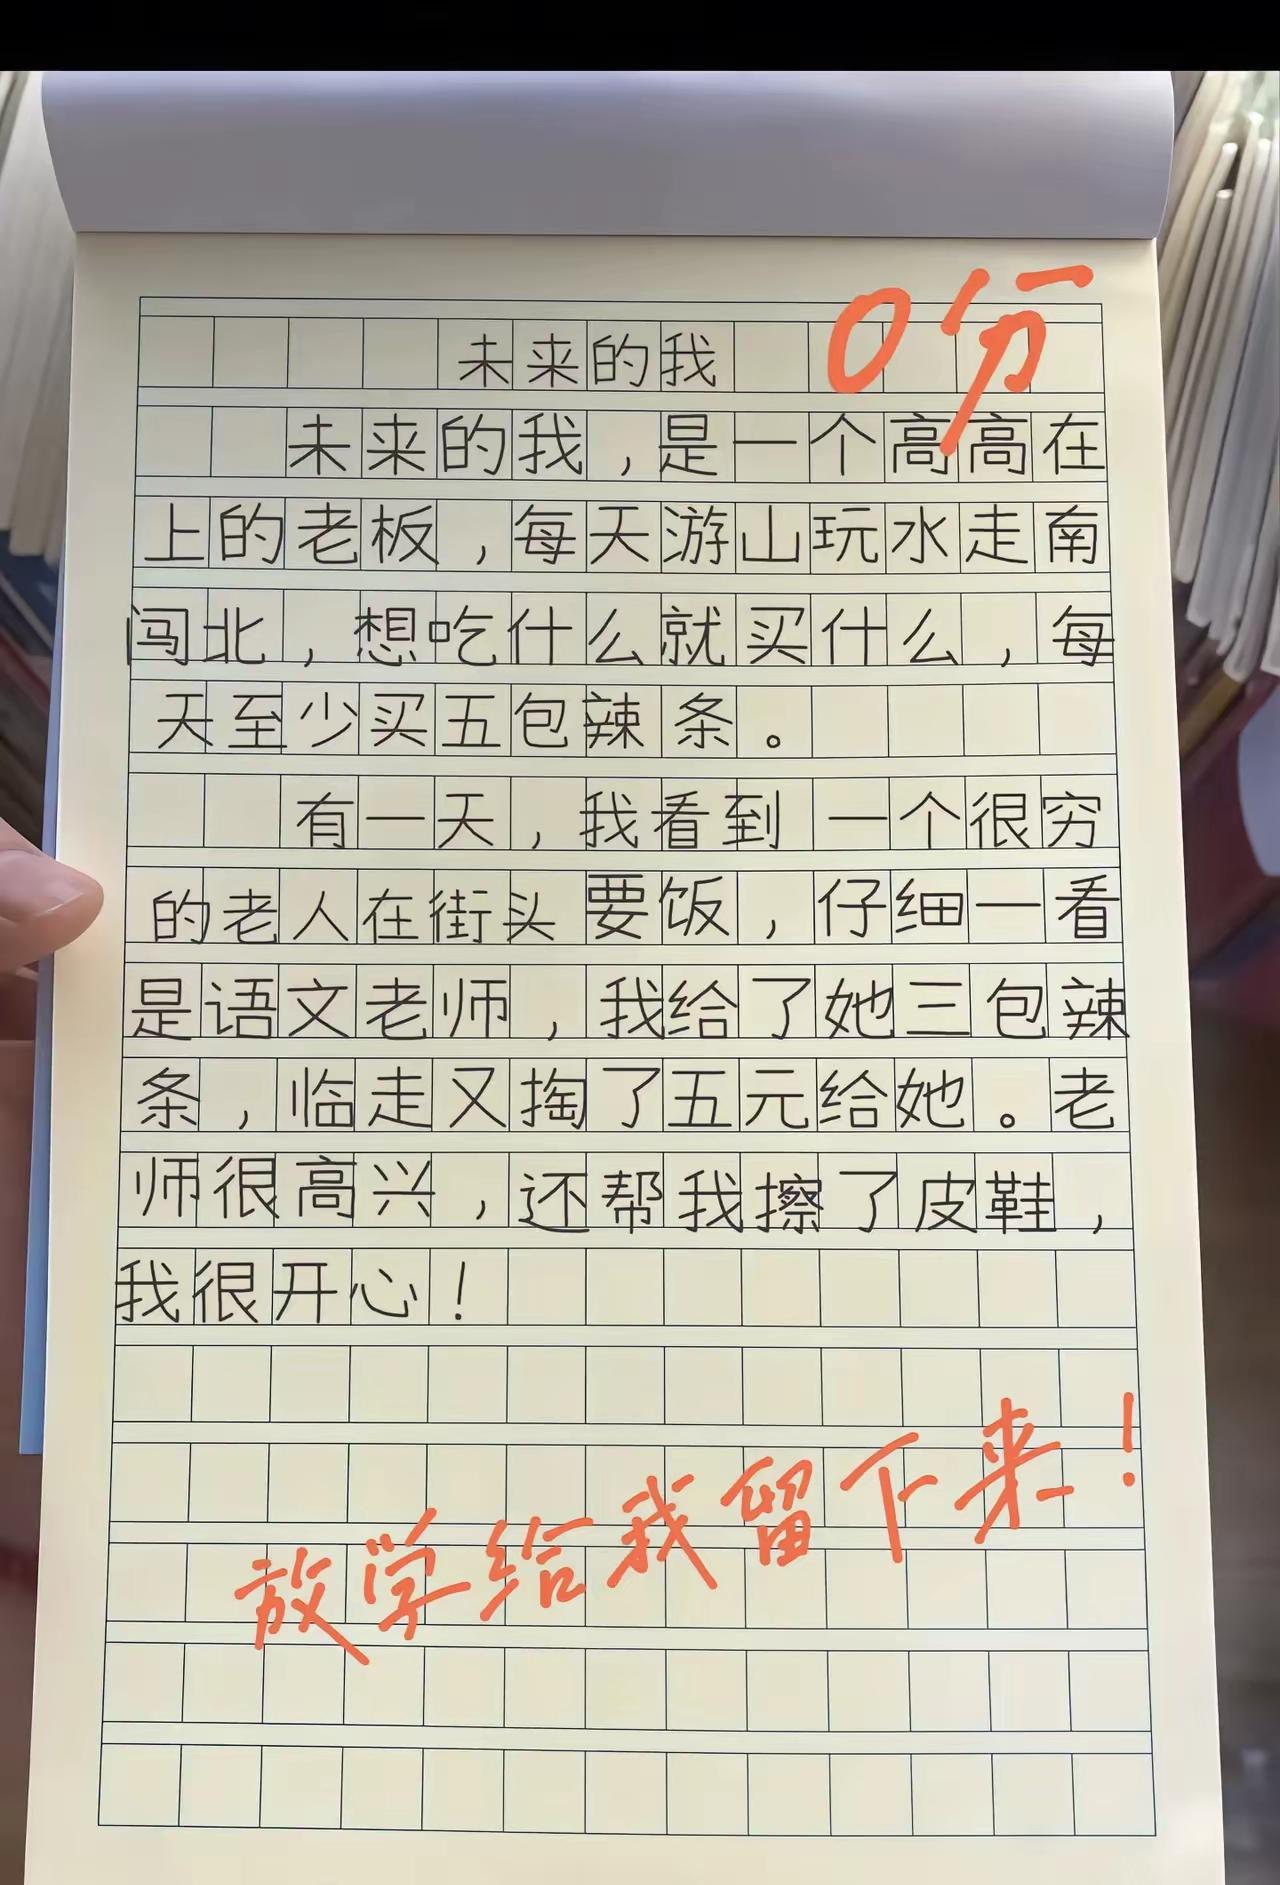 0分
未来的我
未来的我，是一个高高在
上的老板，每天游山玩水走南
闯北，想吃什么就买什么，每
天至少买五包辣条。
有一天，我看到一个很穷
的老人在街头要饭，仔细一看
是语文老师，我给了她三包辣
条，临走又掏了五元给她。老
师很高兴，还帮我擦了皮鞋，
我很开心！
放学给我留下来！